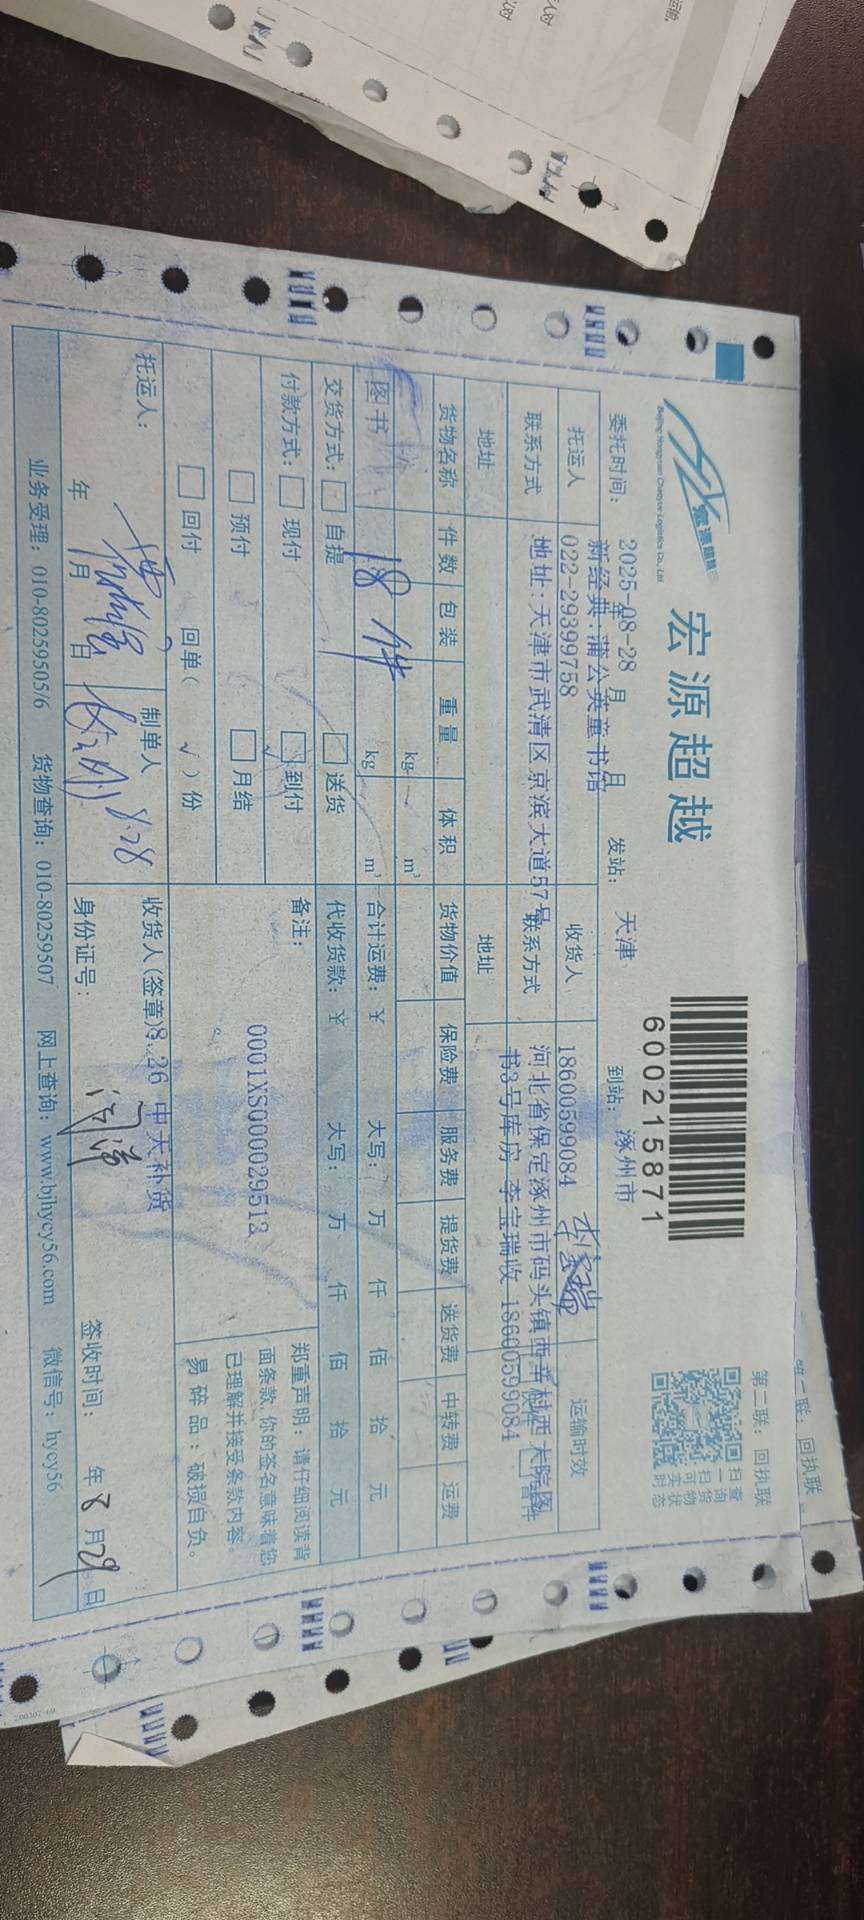 宏源超越
Beijing Hongyuan Chaoyue Logistics Co., Ltd.
宏源超越
600215871
第二联：回执联
扫一扫可实时
查询货物状态
委托时间： 2025-08-28 年 月 日 发站： 天津 到站： 涿州市
托运人 新经典:蒲公英童书馆 收货人 18600599084 李宝瑞 运输时效
联系方式 022-29399758 联系方式
地址:天津市武清区京滨大道57号 河北省保定涿州市码头镇西辛村西大院图
地址 地址 书3号库房 李宝瑞收 18600599084
货物名称 件数 包装 重量 体积 货物价值 保险费 服务费 提货费 送货费 中转费 运费
kg m³
图书 18 件 kg m³ 合计运费：￥ 大写： 万 仟 佰 拾 元
交货方式： 自提 送货 代收货款：￥ 大写： 万 仟 佰 拾 元
付款方式： 现付 到付 √ 备注：
预付 月结 0001XS00002951
回付 回单（ √ ）份
郑重声明：请仔细阅读背
面条款，你的签名意味着您
已理解并接受条款内容。
易碎品：破损自负。
托运人： 制单人 8.28 收货人(签章) 8.26 中天补货
年 月 日 身份证号： 签收时间： 年 8 月 29 日
业务受理：010-80259505/6 货物查询：010-80259507 网上查询：www.bjhycy56.com 微信号：hycy56
第一联：回执联